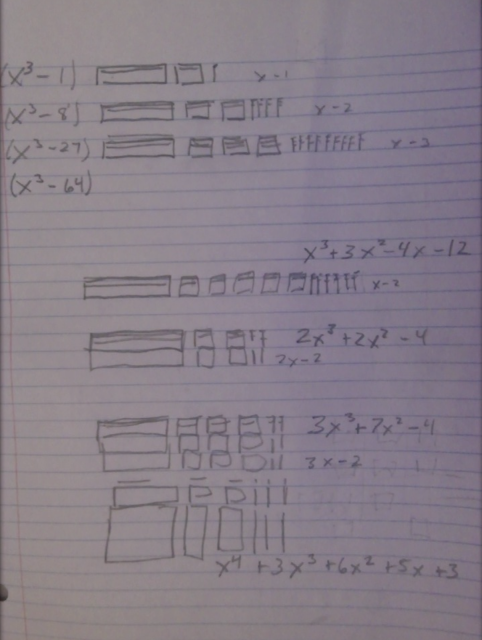 (x³ - 1) x - 1
(x³ - 8) x - 2
(x³ - 27) x - 2
(x³ - 64)
x³ + 3x² - 4x - 12
x - 2
2x³ + 2x² - 4
2x - 2
3x³ + 7x² - 4
3x - 2
x⁴ + 3x³ + 6x² + 5x + 3